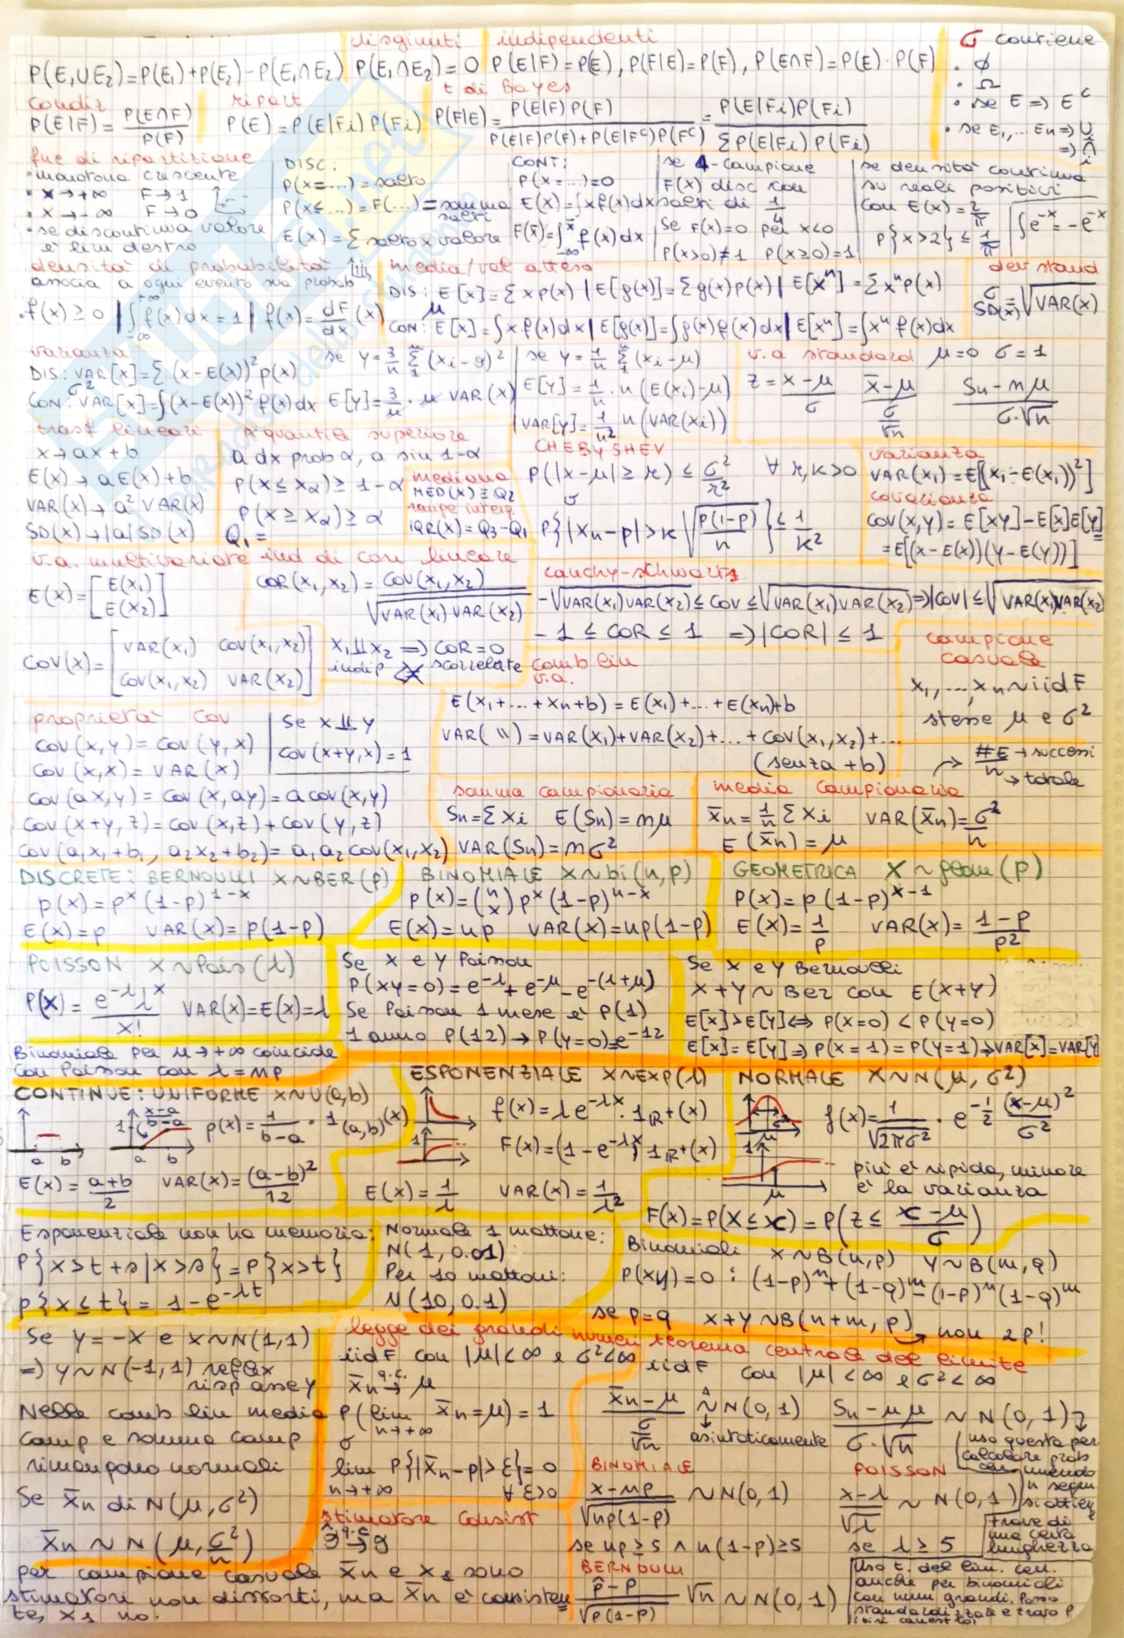 disgiunti
P(E₁∪E₂)=P(E₁)+P(E₂)-P(E₁∩E₂) P(E₁∩E₂)=0
indipendenti
P(E|F)=P(E), P(F|E)=P(F), P(E∩F)=P(E)·P(F)
σ contiene
· ∅
· Ω
· se E => Eᶜ
· se E₁,... En => ∪
=> ∩
condiz
P(E|F) = P(E∩F)/P(F)
ripart
P(E)=P(E|Fi)P(Fi)
t di Bayes
P(F|E)= P(E|F)P(F)/(P(E|F)P(F)+P(E|Fᶜ)P(Fᶜ)) = P(E|Fi)P(Fi)/(ΣP(E|Fi)P(Fi))
fnc di ripartizione
· monotona crescente
· x→+∞ F→1
· x→-∞ F→0
· se discontinua valore
è lim destro
DISC:
P(x=...)=salto
P(x≤...)=F(...)=somma salti
E(x)=Σ salto x valore
CONT:
P(x=...)=0
E(x)=∫xf(x)dx
F(x̄)=∫f(x)dx
se 4-campione
F(x) disc con
salti di 1/4
Se F(x)=0 per x<0
P(x>0)≠1 P(x≥0)=1
se densità continua
su reali positivi
con E(x)=2/π
P{x>2}≤1/π
∫e⁻ˣ=-e⁻ˣ
densità di probabilità
associa a ogni evento sua probab
· f(x)≥0 | ∫f(x)dx=1 | f(x)=dF/dx (x)
media/val atteso
DIS: E[x]=Σxp(x) | E[g(x)]=Σg(x)p(x) | E[xⁿ]=Σxⁿp(x)
μ
CON: E[x]=∫xf(x)dx | E[g(x)]=∫g(x)f(x)dx | E[xⁿ]=∫xⁿf(x)dx
dev stand
σ
SD(x)=√VAR(x)
varianza
DIS: VAR[x]=Σ(x-E(x))²p(x)
σ²
CON: VAR[x]=∫(x-E(x))²f(x)dx
E[Y]=3/n · n VAR(x)
se y=1/n Σ(xi-μ)
E[Y]=1/n · n(E(xi)-μ)
VAR[Y]=1/n² n(VAR(xi))
v.a standard μ=0 σ=1
z=(x-μ)/σ (x̄-μ)/(σ/√n) (Sn-nμ)/(σ·√n)
trasf lineari
x→ax+b
E(x)→aE(x)+b
VAR(x)→a²VAR(x)
SD(x)→|a|SD(x)
quantile superiore
a dx prob α, a sin 1-α
P(x≤xα)≥1-α
P(x≥xα)≥α
Q₁=
mediana
MED(x)≡Q2
range interq
IQR(x)=Q3-Q1
CHEBYSHEV
P(|x-μ|≥r)≤σ²/r² ∀ r,k>0
P{|x̄n-p|>k√(p(1-p)/n)}≤1/k²
varianza
VAR(x₁)=E[(x₁-E(x₁))²]
covarianza
COV(x,y)=E[xy]-E[x]E[y]
=E[(x-E(x))(y-E(y))]
v.a. multivariate ind di con lineare
E(x)=[E(x₁) E(x₂)]
COR(x₁,x₂)=COV(x₁,x₂)/√VAR(x₁)VAR(x₂)
cauchy-schwartz
-√VAR(x₁)VAR(x₂)≤COV≤√VAR(x₁)VAR(x₂)=>|COV|≤√VAR(x₁)VAR(x₂)
-1≤COR≤1 =>|COR|≤1
COV(x)=[VAR(x₁) COV(x₁,x₂)
COV(x₁,x₂) VAR(x₂)]
x₁⫫x₂ => COR=0
indip scorrelate
comb lin
v.a.
E(x₁+...+xn+b)=E(x₁)+...+E(xn)+b
VAR(")=VAR(x₁)+VAR(x₂)+...+COV(x₁,x₂)+...
(senza +b)
campione
casuale
x₁,...,xn~iidF
stesse μ e σ²
#E→successi
n→totale
proprietà COV
COV(x,y)=COV(y,x)
COV(x,x)=VAR(x)
COV(ax,y)=COV(x,ay)=aCOV(x,y)
COV(x+y,z)=COV(x,z)+COV(y,z)
COV(a₁x₁+b₁, a₂x₂+b₂)=a₁a₂COV(x₁,x₂)
Se x⫫y
COV(x+y,x)=1
somma campionaria
Sn=Σxi E(Sn)=nμ
VAR(Sn)=nσ²
media campionaria
x̄n=1/n Σxi VAR(x̄n)=σ²/n
E(x̄n)=μ
DISCRETE: BERNOULLI X~BER(p)
p(x)=pˣ(1-p)¹⁻ˣ
E(x)=p VAR(x)=p(1-p)
BINOMIALE X~bi(n,p)
p(x)=(n x)pˣ(1-p)ⁿ⁻ˣ
E(x)=np VAR(x)=np(1-p)
GEOMETRICA X~geom(p)
P(x)=p(1-p)ˣ⁻¹
E(x)=1/p VAR(x)=(1-p)/p²
POISSON X~Pois(λ)
P(x)=e^-λ λˣ/x! VAR(x)=E(x)=λ
Binomiale per n→+∞ coincide
con Poisson con λ=np
Se x e y Poisson
P(xy=0)=e^-λ+e^-μ-e^-(λ+μ)
Se Poisson 1 mese è P(1)
1 anno P(12)→P(y=0)=e⁻¹²
Se x e y Bernoulli
x+y~Ber con E(x+y)
E[x]>E[y]⇔P(x=0)<P(y=0)
E[x]=E[y]=>P(x=1)=P(y=1)=>VAR[x]=VAR[y]
CONTINUE: UNIFORME X~U(a,b)
a b
1 (x-a)/(b-a) a b
p(x)=1/(b-a) · 1(a,b)(x)
E(x)=(a+b)/2 VAR(x)=(a-b)²/12
ESPONENZIALE X~EXP(λ)
f(x)=λe^-λx · 1R+(x)
F(x)=(1-e^-λx)1R+(x)
E(x)=1/λ VAR(x)=1/λ²
NORMALE X~N(μ,σ²)
f(x)=1/√2πσ² · e^-1/2 (x-μ)²/σ²
più è ripida, minore
è la varianza
F(x)=P(X≤x)=P(z≤(x-μ)/σ)
Esponenziale non ha memoria:
P{x>t+s|x>s}=P{x>t}
P{x≤t}=1-e^-λt
Normale 1 mattone:
N(1,0.01)
Per 10 mattoni:
N(10,0.1)
Binomiali x~B(n,p) y~B(m,q)
P(xy)=0: (1-p)ⁿ+(1-q)ᵐ-(1-p)ⁿ(1-q)ᵐ
se p=q x+y~B(n+m,p)→non 2p!
Se y=-x e x~N(1,1)
=> y~N(-1,1) refl x
risp asse y
Nelle comb lin media
camp e somma camp
rimangono normali
Se x̄n di N(μ,σ²)
x̄n~N(μ,σ²/n)
legge dei grandi numeri
iidF con |μ|<∞ e σ²<∞
x̄n q.c.→ μ
P(lim n→+∞ x̄n=μ)=1
σ
lim n→+∞ P{|x̄n-p|>ε}=0
∀ε>0
stimatore consist
θ̂ q.c.→ θ
teorema centrale del limite
iidF con |μ|<∞ e σ²<∞
(x̄n-μ)/(σ/√n) ~ N(0,1)
asintoticamente
(Sn-nμ)/(σ·√n) ~N(0,1)
uso questa per
calcolare prob
BINOMIALE
(x-np)/√np(1-p) ~N(0,1)
se np≥5 ∧ n(1-p)≥5
POISSON
(x-λ)/√λ ~N(0,1)
se λ≥5
BERNOULLI
(p̂-p)/√p(1-p) √n ~N(0,1)
Uso t. del lim. cen.
anche per binomiali
con num grandi. Posso
per campione casuale x̄n e x₁ sono
stimatori non distorti, ma x̄n è consisten
te, x₁ no.